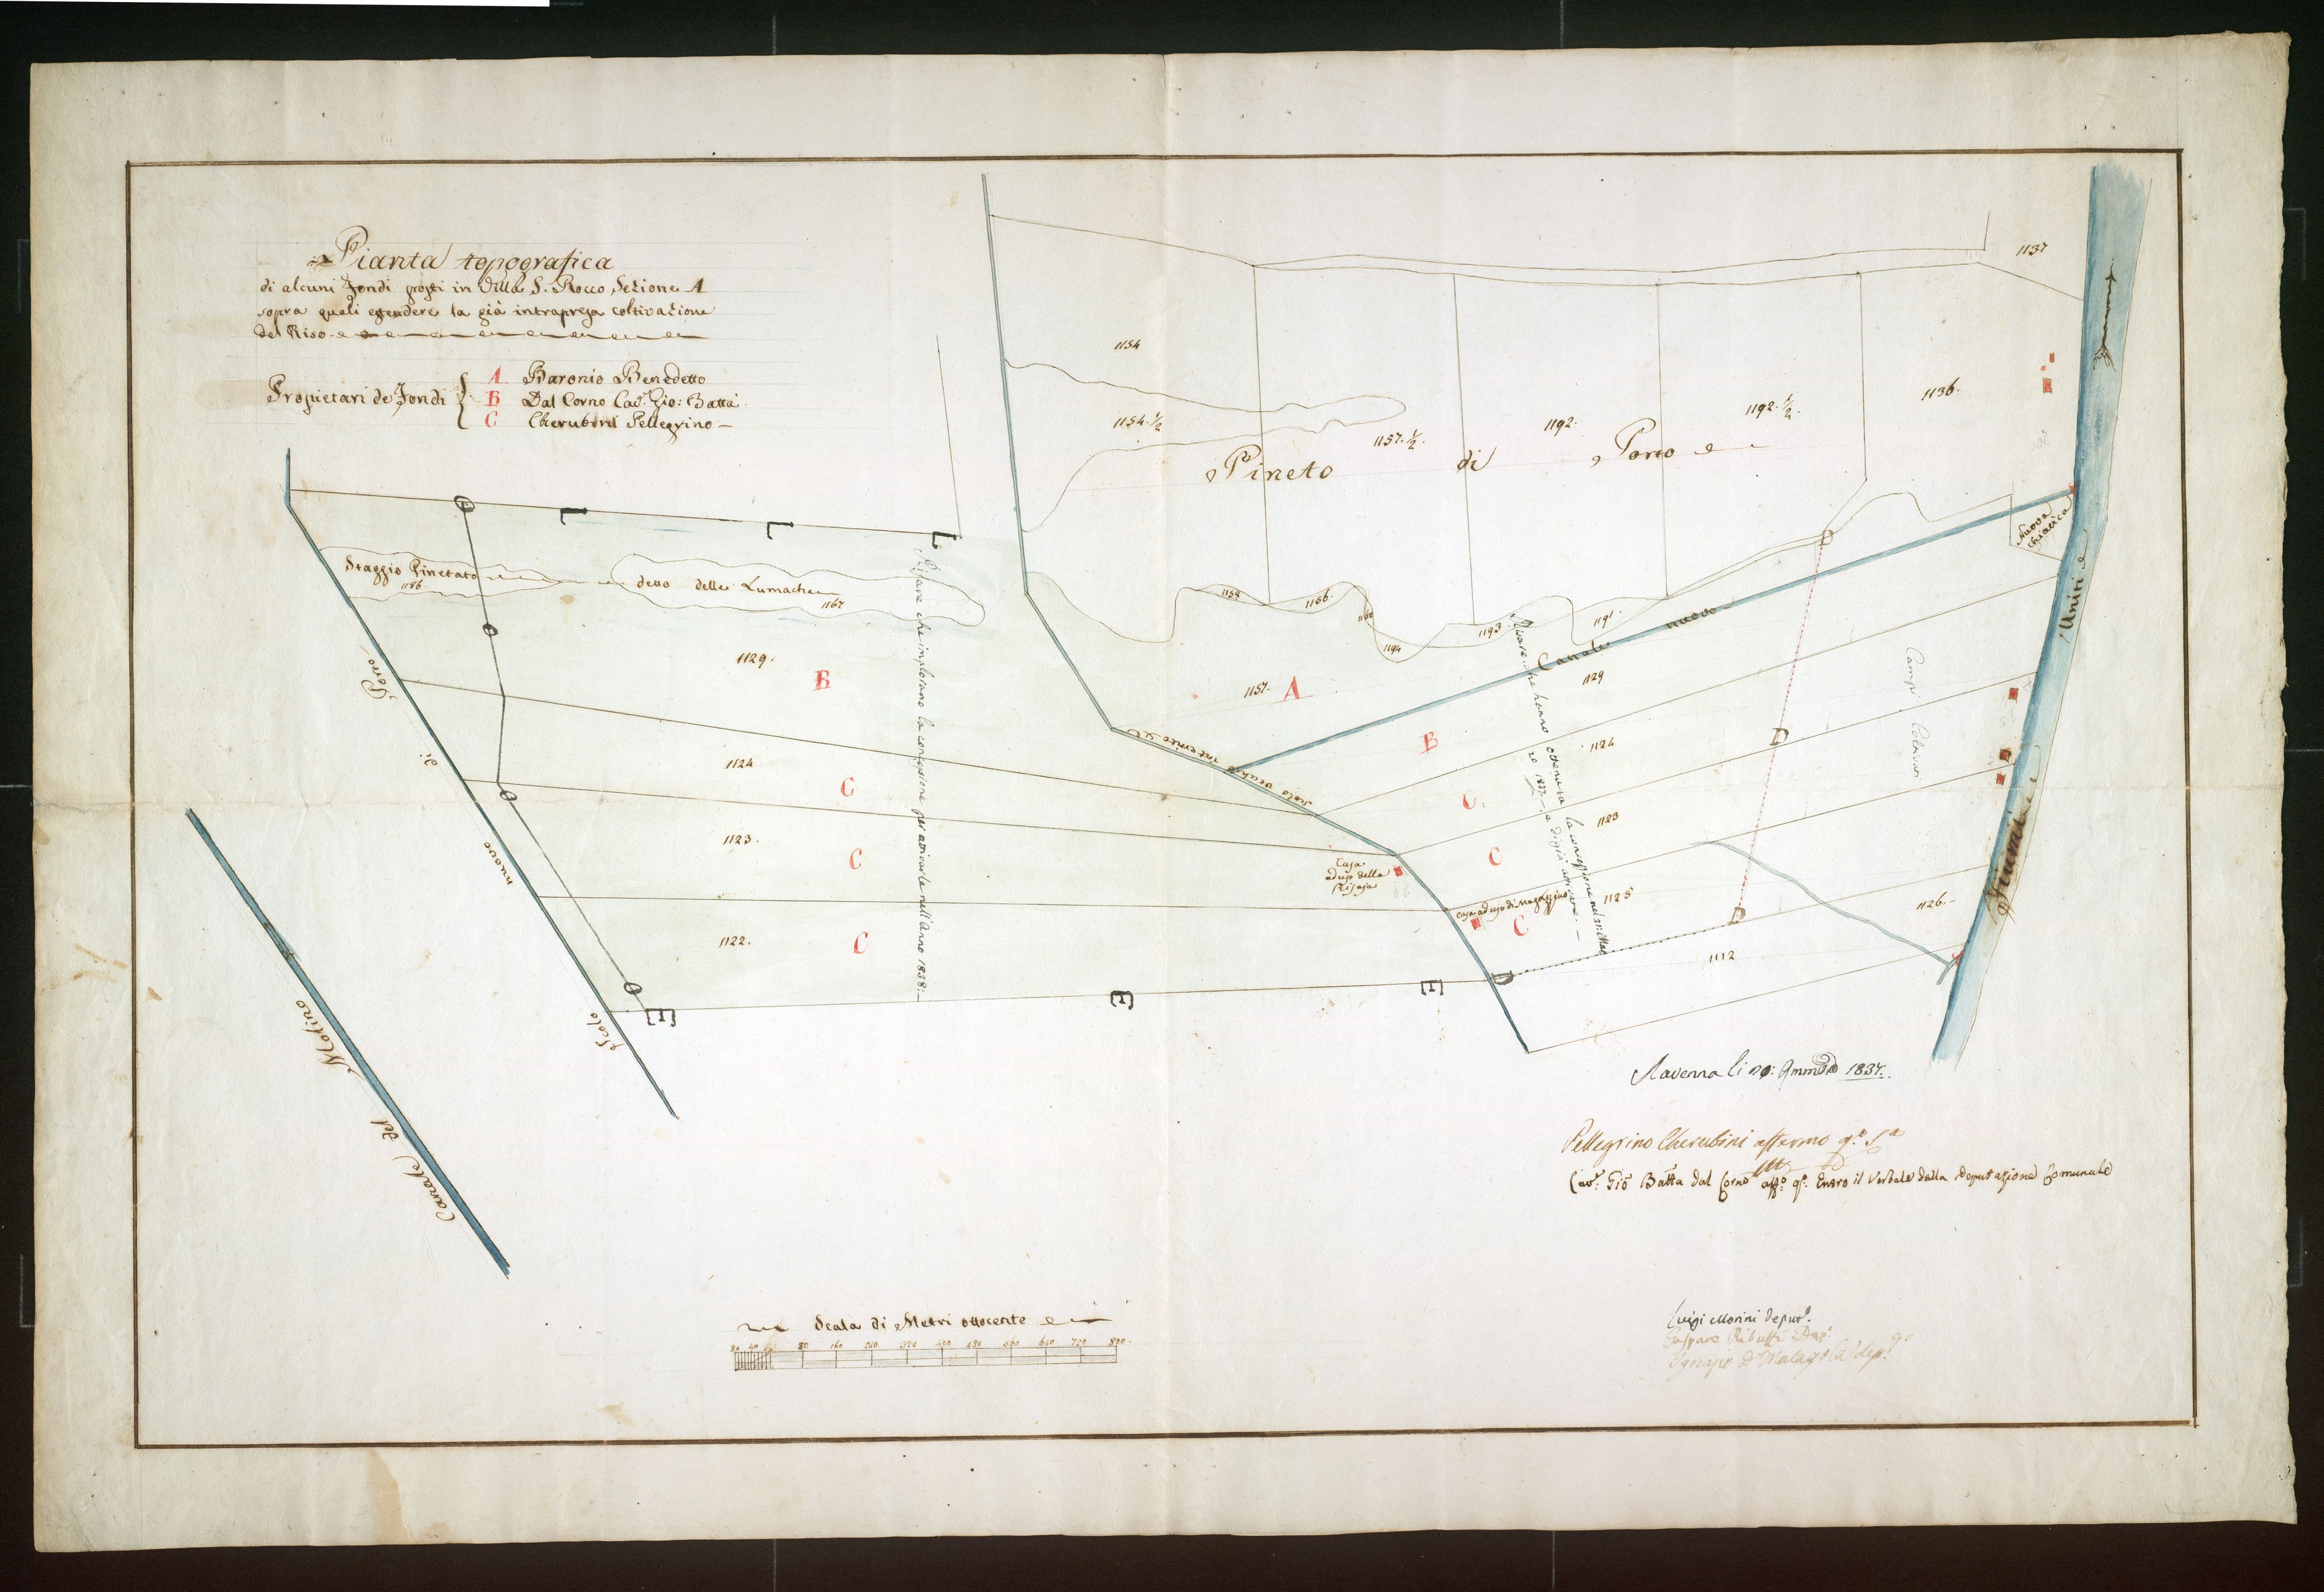 Pianta topografica
di alcuni Fondi posti in Villa S. Rocco, Sezione A
sopra quali estendere la già intrapresa coltivazione
del Riso
Proprietari de Fondi
A Baronio Benedetto
B Dal Corno Cav. Gio: Batta
C Cherubini Pellegrino
1137
1154
1154.½
1157.½.
1192.
1192.½.
1136.
Pineto di Porto
Nuova Chiavica
O L L L
Staggio Pinetato
1186
detto delle Lumache
1167
O
1158
1156.
1160
1194
1193
1191.
D
Canale nuovo
Fiumi Uniti
1129.
B
1157. A
1129
B
Campi Coltivati
Scolo vecchio interrito
1124
C
1124
C.
D
O
1123.
C
1123
C
Casa
ad uso della
Risaja
Casa ad uso di Magazzino
1125
C
1126.
D
1122.
C
1112
D
O
E E E
Risare che implorano la concessione per attivarle nell'Anno 1838:
Risare che hanno ottenuta la concessione nel
Scolo nuovo di Porto
Canale del Molino
Ravenna li 20: 9mmbre 1837.
Pellegrino Cherubini affermo qto Sa
Cavr: Gio Batta dal Corno affo qo. Entro il Verbale dalla Deputazione Comunale
Scala di Metri ottocento
80 40 80 160 240 320 400 480 560 640 720 800.
Luigi Morini Deputo.
Gaspare Ribuffi Depo.
Ignazio Dr Malagola depo.